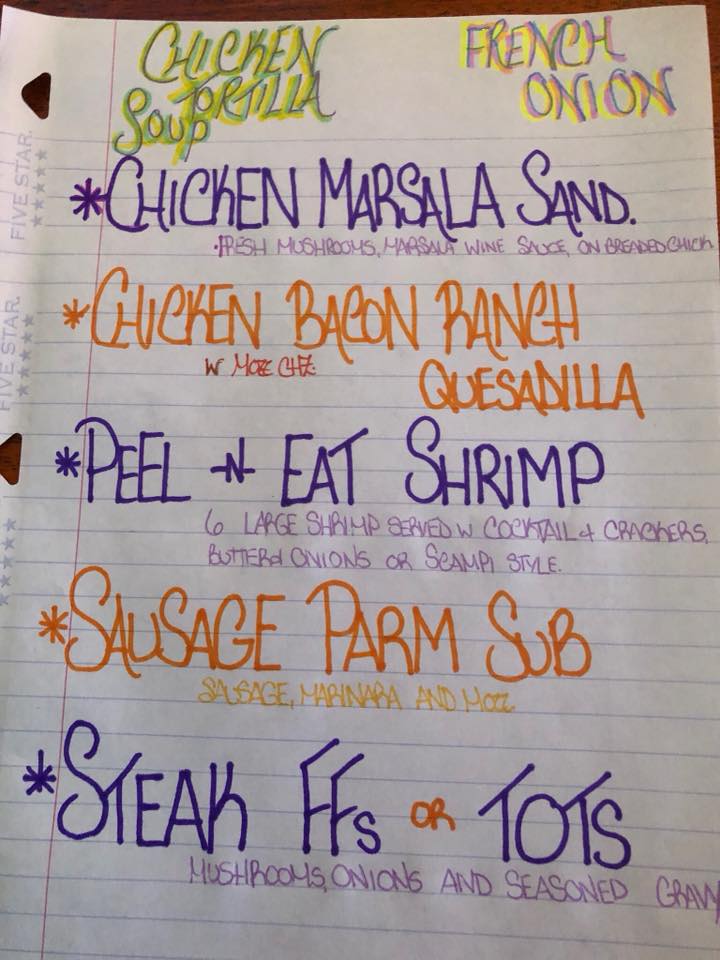 CHICKEN
TORTILLA
SOUP
FRENCH
ONION
*CHICKEN MARSALA SAND.
·FRESH MUSHROOMS, MARSALA WINE SAUCE, ON BREADED CHICK
*CHICKEN BACON RANCH
W MOZZ CHZ.
QUESADILLA
*PEEL -N- EAT SHRIMP
6 LARGE SHRIMP SERVED W COCKTAIL + CRACKERS.
BUTTERd ONIONS OR SCAMPI STYLE.
*SAUSAGE PARM SUB
SAUSAGE, MARINARA AND MOZZ
*STEAK FFs OR TOTS
MUSHROOMS, ONIONS AND SEASONED GRAVY
FIVE STAR.
FIVE STAR.